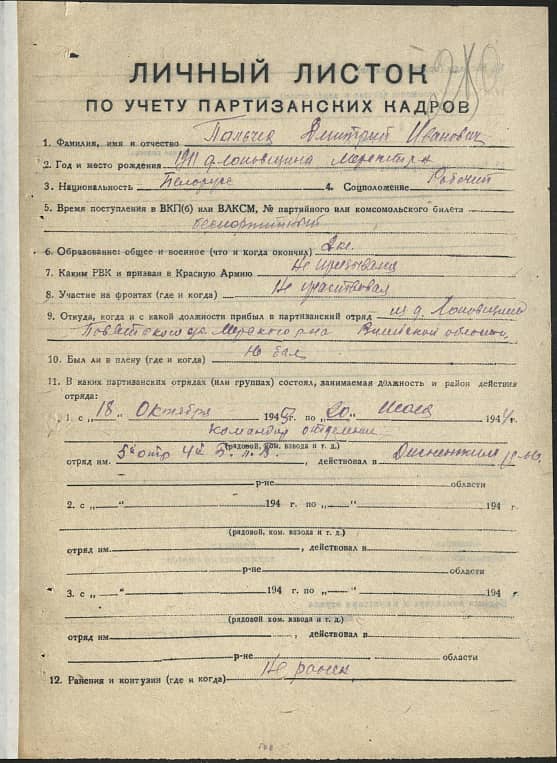 ЛИЧНЫЙ ЛИСТОК
ПО УЧЕТУ ПАРТИЗАНСКИХ КАДРОВ
1. Фамилия, имя и отчество Дмитрий Иванович
2. Год и место рождения 1911 д.
3. Национальность Белорус 4. Соцположение Рабочий
5. Время поступления в ВКП(б) или ВЛКСМ, № партийного или комсомольского билета
беспартийный
6. Образование: общее и военное (что и когда окончил) 2 кл.
7. Каким РВК и призван в Красную Армию Не призывался
8. Участие на фронтах (где и когда) Не участвовал
9. Откуда, когда и с какой должности прибыл в партизанский отряд из д.
области
10. Был ли в плену (где и когда) Не был
11. В каких партизанских отрядах (или группах) состоял, занимаемая должность и район действия
отряда:
1. с „ 18 „ Октября 194 г. по „ 20 „ Июля 1944 г.
командир отделения
(рядовой, ком. взвода и т. д.)
отряд им. 5й отр 4й Б. п. Б. , действовал в
р-не области
2. с „ — “ 194 г. по „ — “ 194 г.
(рядовой, ком. взвода и т. д.)
отряд им. , действовал в
р-не области
3. с „ — “ 194 г. по „ — “ 194 г.
(рядовой, ком. взвода и т. д.)
отряд им. , действовал в
р-не области
12. Ранения и контузии (где и когда) Не ранен